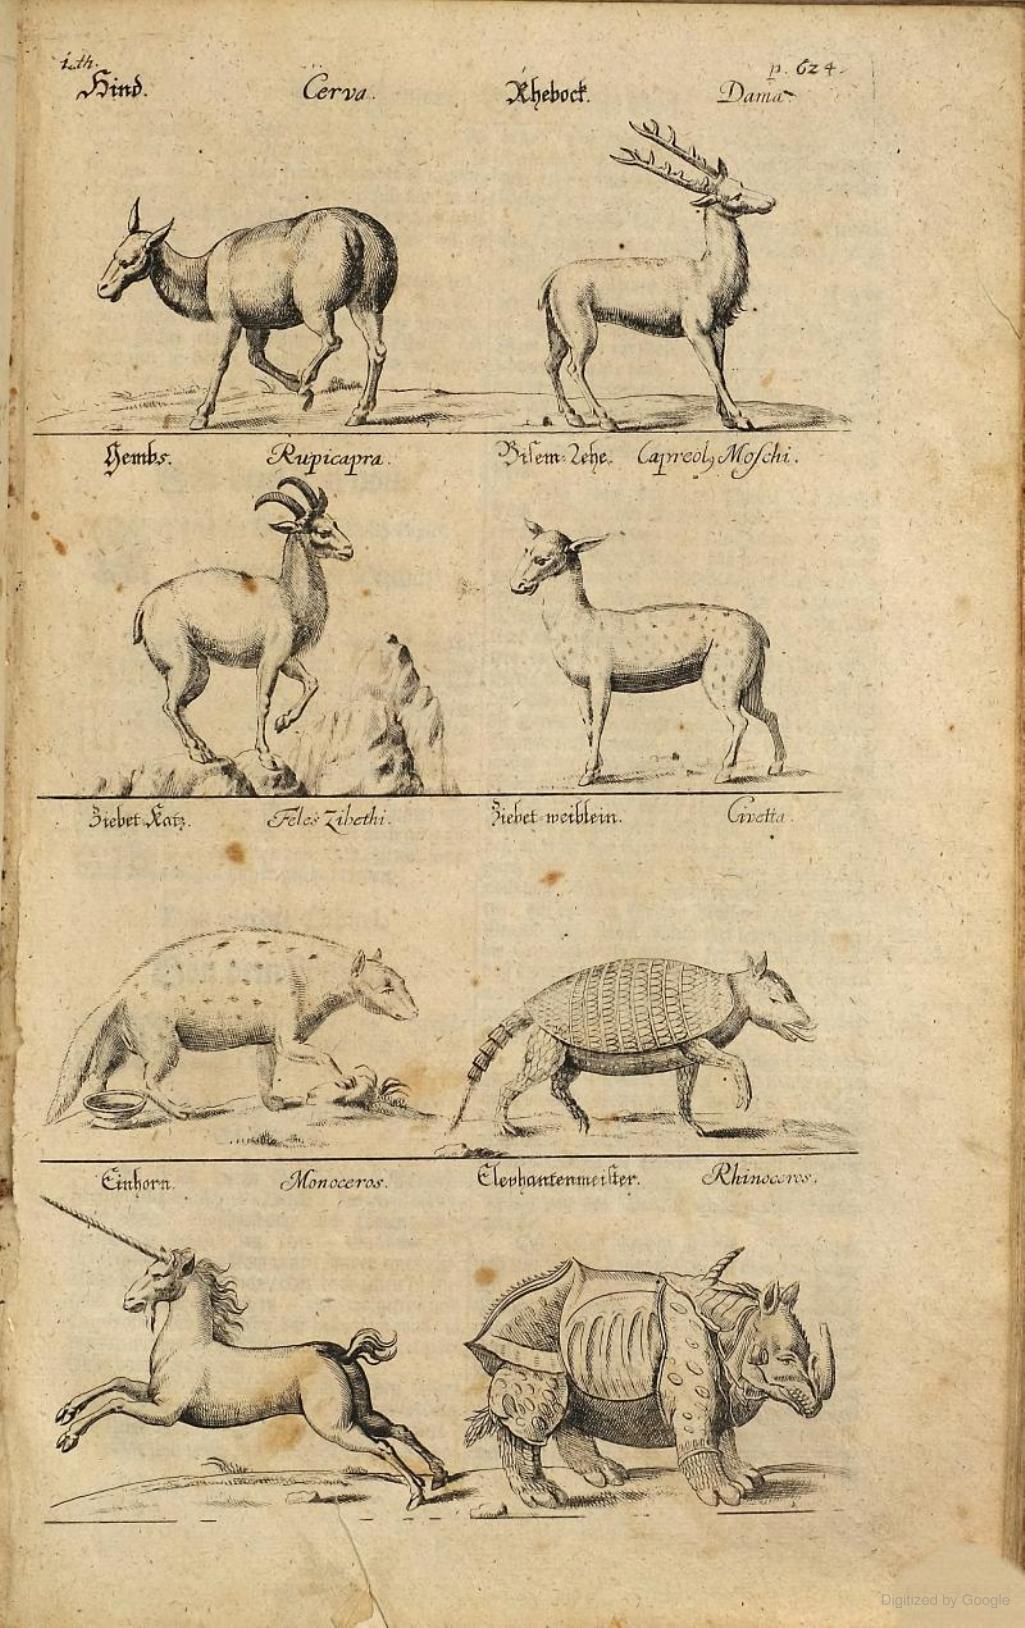 i.th. p. 624.
Hind. Cerva. Rhebock. Dama.
Gembs. Rupicapra. Bisem-Rehe. Capreolꝰ Moschi.
Ziebet-Katz. Feles Zibethi. Ziebet-weiblein. Civetta.
Einhorn. Monoceros. Elephantenmeister. Rhinoceros.
Digitized by Google